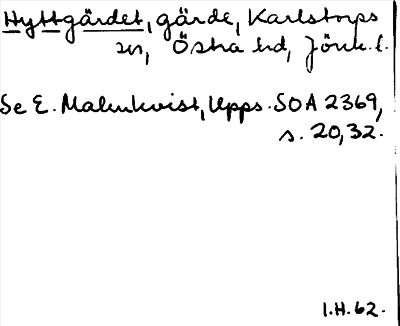 Hyttgärdet, gärde, Karlstorps
sn, Östra hd, Jönk. l.
Se E. Malmkvist, Upps. SOA 2369,
s. 20, 32.
I.H. 62.